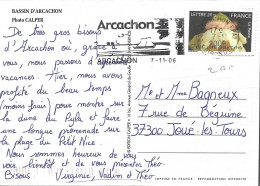 BASSIN D'ARCACHON
Photo CALPER
De très gros bisous
d'Arcachon où, grâce à
vous, nous passons d'agréables
vacances. Hier, nous avons
profité du beau temps
(moins froid) pour monter sur
la dune du Pyla et faire
une longue promenade sur
la plage du Petit Nice.
Nous sommes heureux de vous
voir bientôt et de vous présenter Théo.
Bisous Virginie, Vadim et Théo
Arcachon
ARCACHON 7-11-06
LETTRE 20
FRANCE
Me et Mme Bagneux
7 rue de Béguine
37300 Joué-les-Tours